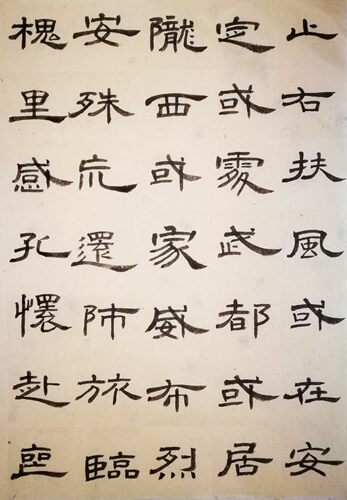 止右扶風或在安
定或處武都或居
隴西或家威布烈
安殊巟還師旅臨
槐里感孔懷赴喪